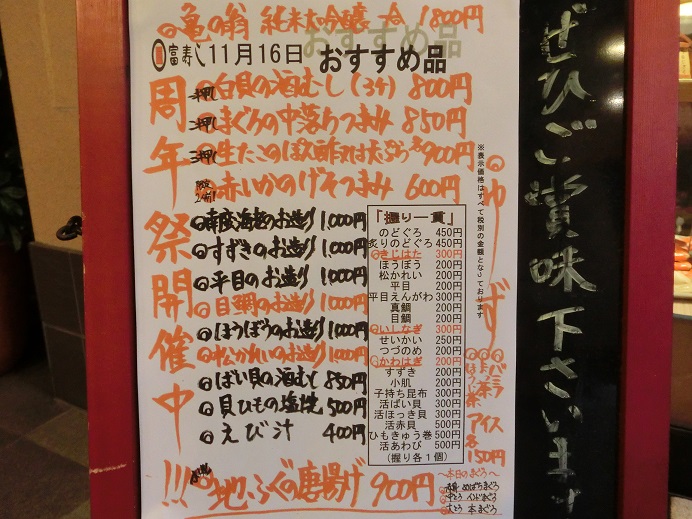 亀の翁 純米大吟醸 一合 1800円
富寿し 11月16日 おすすめ品
おすすめ品
周年祭開催中!!!
一押し 白貝の酒むし(3ケ) 800円
二押し まぐろの中落ちつまみ 850円
三押し 生たこのぽん酢又は天ぷら 900円
赤いかのげそつまみ 600円
南蛮海老のお造り 1000円
すずきのお造り 1000円
平目のお造り 1000円
目鯛のお造り 1000円
ほうぼうのお造り 1000円
松かれいのお造り 1000円
ばい貝の酒むし 850円
貝ひもの塩焼 500円
えび汁 400円
地ふぐの唐揚げ 900円
「握り一貫」
のどぐろ 450円
炙りのどぐろ 450円
きじはた 300円
ほうぼう 200円
松かれい 200円
平目 200円
平目えんがわ 300円
真鯛 200円
目鯛 200円
いしなぎ 300円
せいかい 250円
つづのめ 200円
かわはぎ 200円
すずき 200円
小肌 200円
子持ち昆布 300円
活ばい貝 300円
活ほっき貝 300円
活赤貝 500円
ひもきゅう巻 500円
活あわび 500円
(握り各1個)
※表示価格はすべて税別の金額となっております
ゆず
バニラ
抹茶
ほうじ茶
アイス各150円
~本日のまぐろ~
赤身 めばちまぐろ
中とろ インドまぐろ
大とろ 本まぐろ
ぜひご賞味下さいます